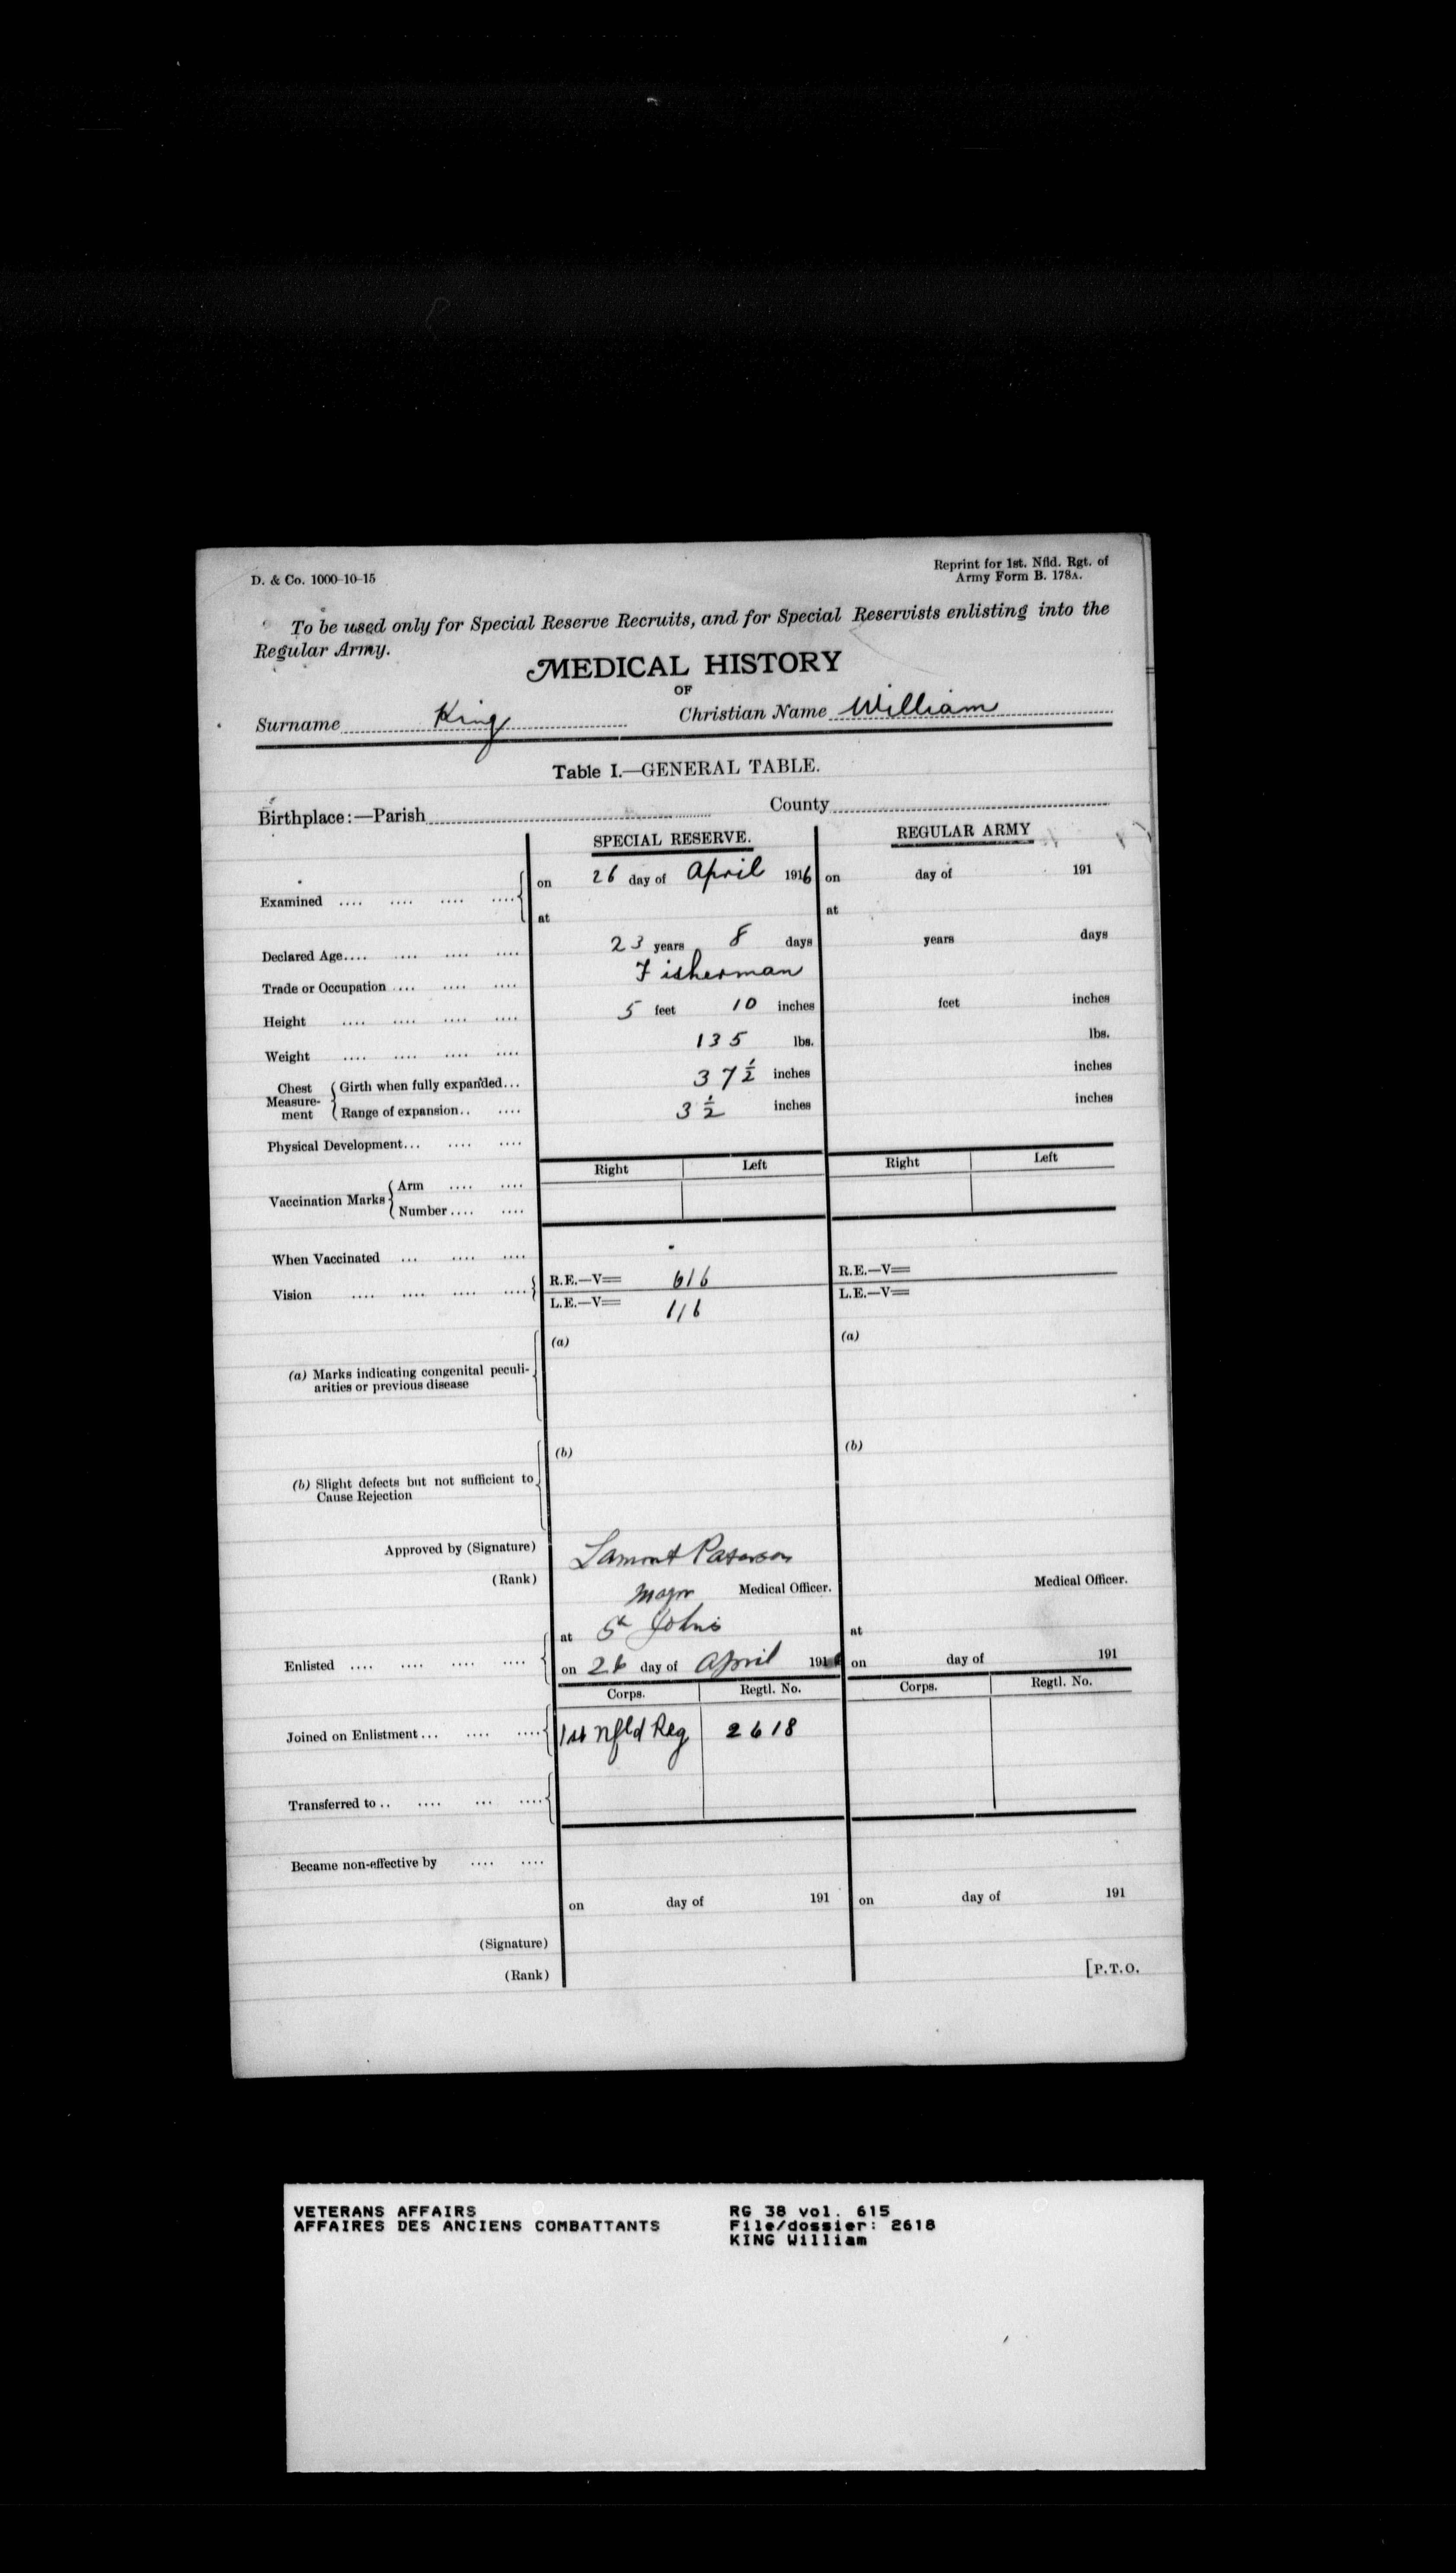 D. & Co. 1000-10-15
Reprint for 1st. Nfld. Rgt. of
Army Form B. 178A.
To be used only for Special Reserve Recruits, and for Special Reservists enlisting into the
Regular Army.
MEDICAL HISTORY
OF
Surname King Christian Name William
Table I.—GENERAL TABLE.
Birthplace:—Parish County
SPECIAL RESERVE. REGULAR ARMY
Examined .... .... .... .... on 26 day of April 1916 on day of 191
at at
Declared Age.... .... .... .... 23 years 8 days years days
Trade or Occupation .... .... .... Fisherman
Height .... .... .... .... 5 feet 10 inches feet inches
Weight .... .... .... .... 135 lbs. lbs.
Chest Measurement Girth when fully expanded... 37 1/2 inches inches
Range of expansion.. .... 3 1/2 inches inches
Physical Development... .... ....
Right Left Right Left
Vaccination Marks Arm .... ....
Number .... ....
When Vaccinated ... .... ....
Vision .... .... .... .... R.E.—V= 6/6 R.E.—V=
L.E.—V= 1/6 L.E.—V=
(a) (a)
(a) Marks indicating congenital peculi-
arities or previous disease
(b) (b)
(b) Slight defects but not sufficient to
Cause Rejection
Approved by (Signature) Lamont Paterson
(Rank) Major Medical Officer. Medical Officer.
at St Johns at
Enlisted .... .... .... .... on 26 day of April 191 on day of 191
Corps. Regtl. No. Corps. Regtl. No.
Joined on Enlistment... .... .... 1st Nfld Reg 2618
Transferred to .. .... ... ....
Became non-effective by .... ....
on day of 191 on day of 191
(Signature)
(Rank)
[P.T.O.
VETERANS AFFAIRS RG 38 vol. 615
AFFAIRES DES ANCIENS COMBATTANTS File/dossier: 2618
KING William